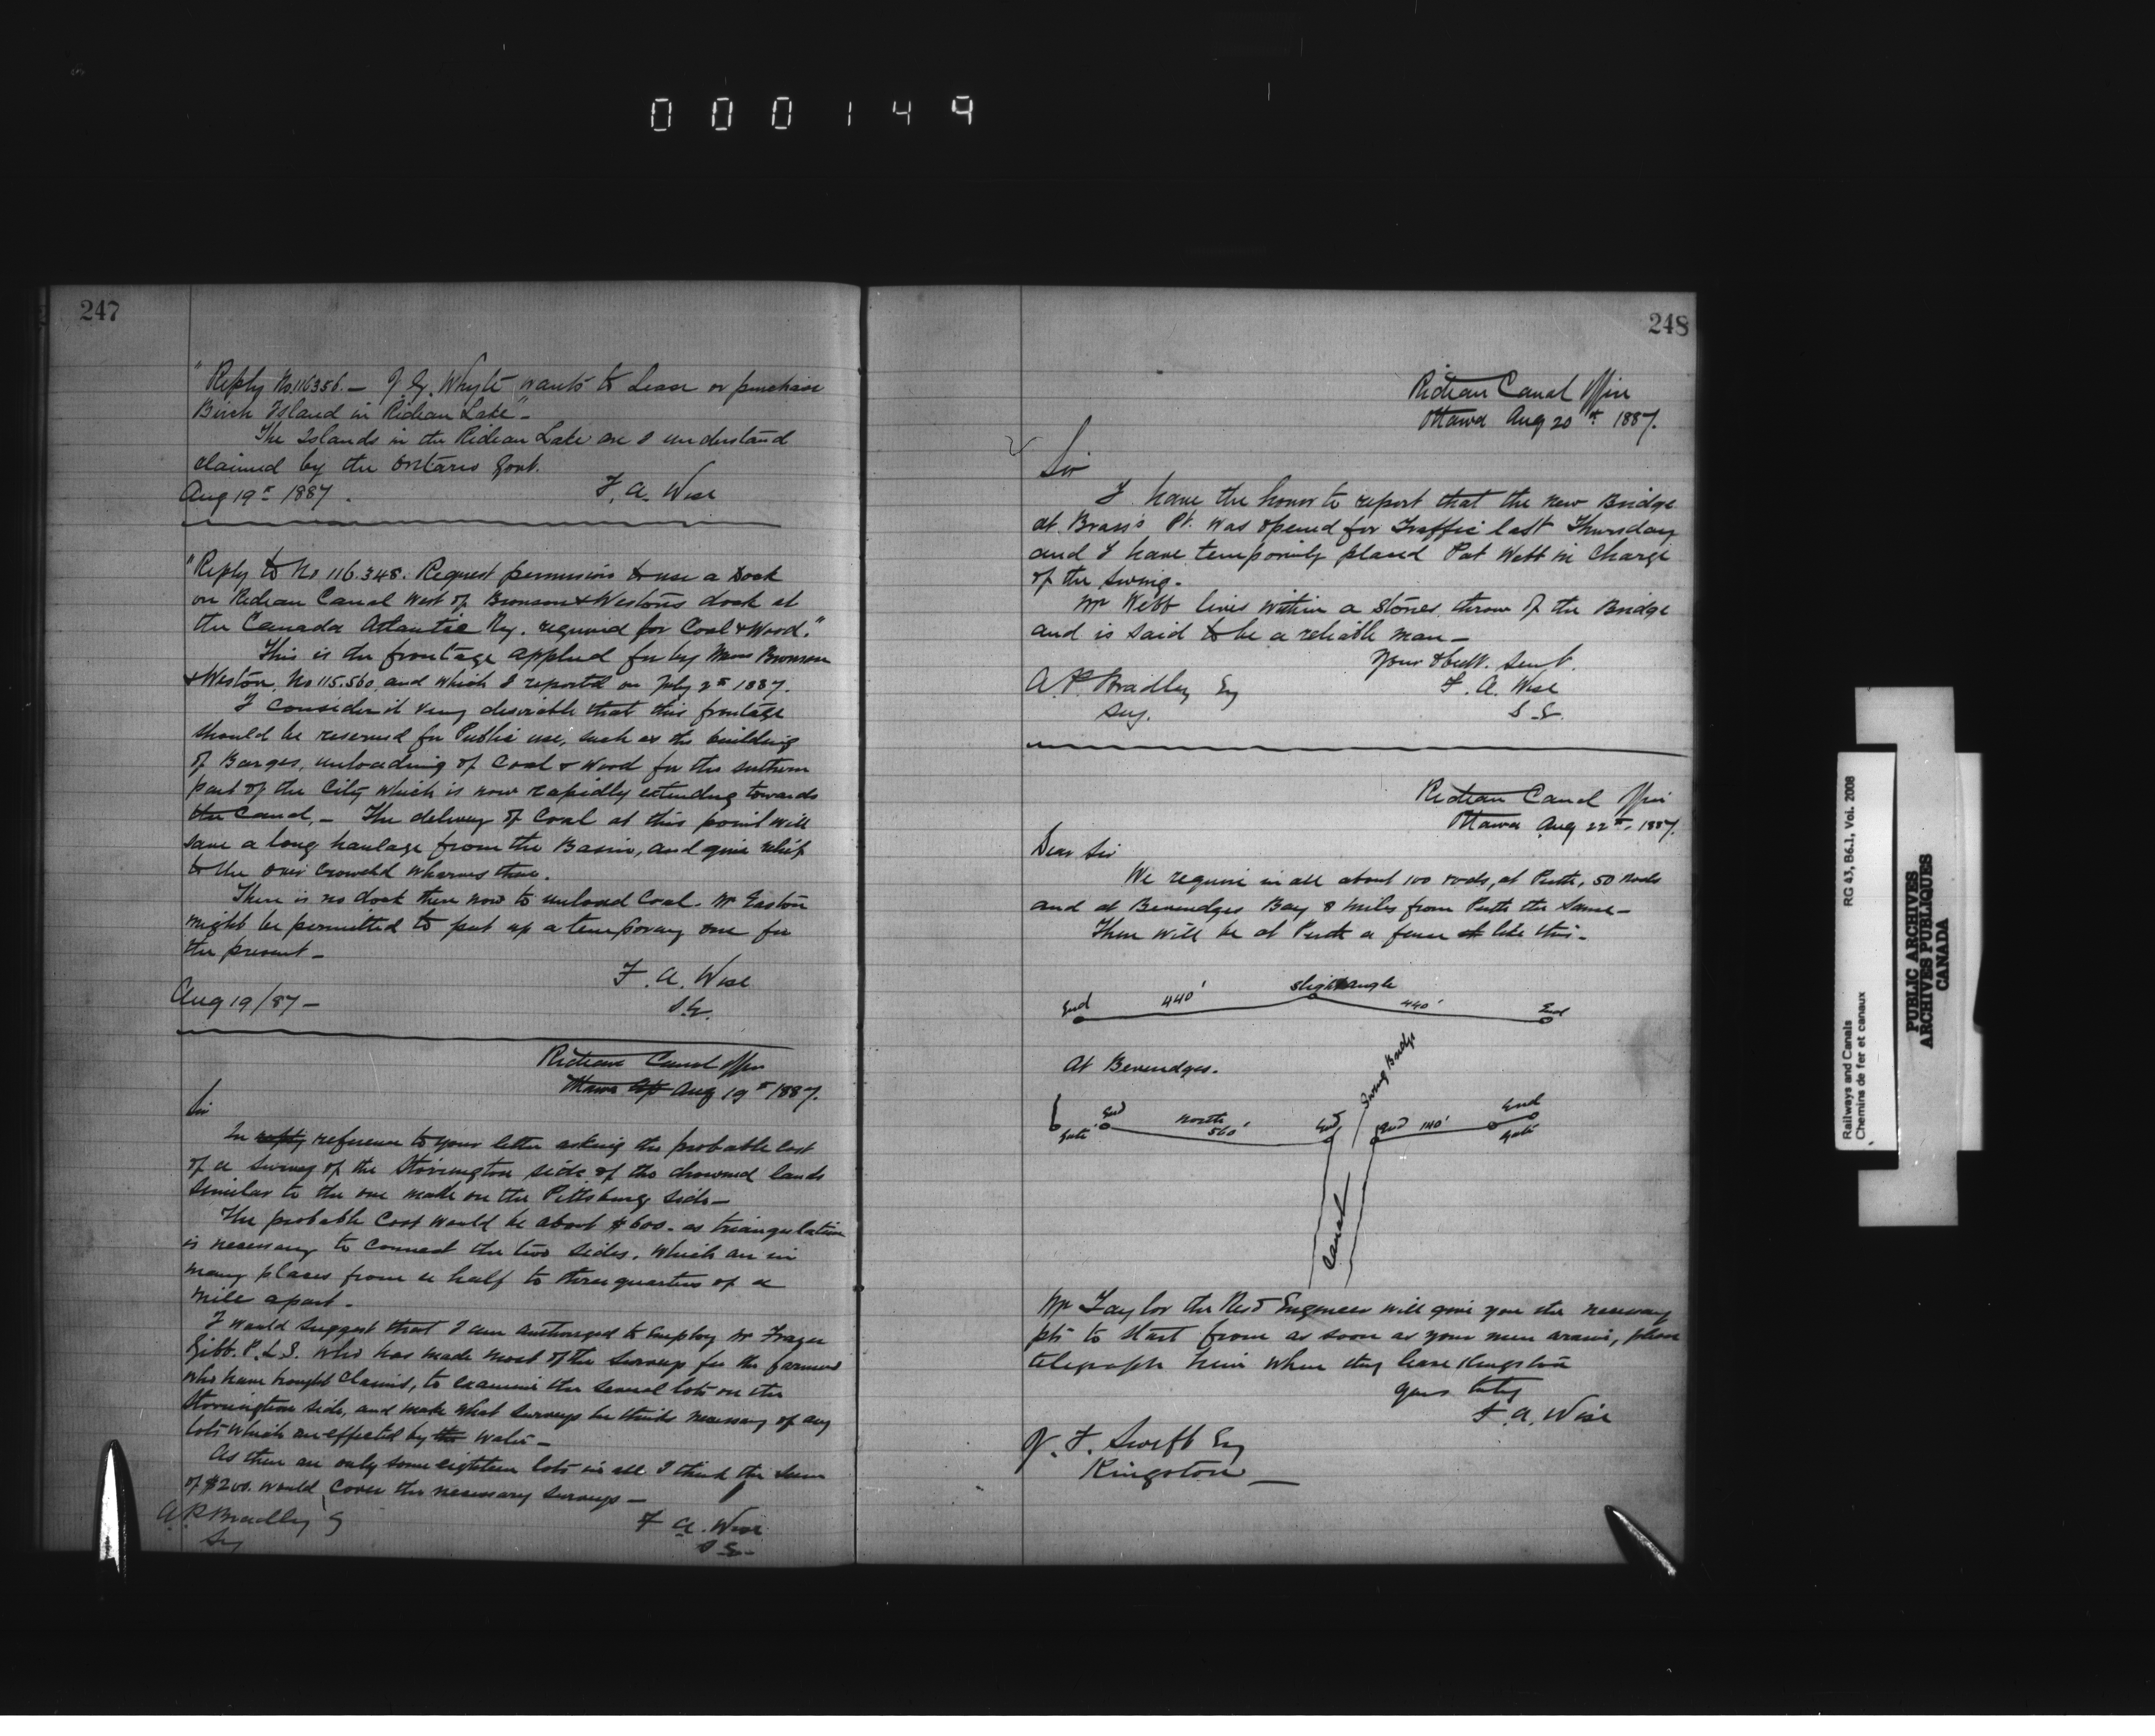 000149
247
"Reply No 116356. — J. G. Whyte wants to Lease or purchase
Birch Island in Rideau Lake" —
The Islands in the Rideau Lake are I understand
claimed by the Ontario Govt.
Aug 19th 1887.
F. A. Wise
"Reply to No 116.348. Request permission to use a Dock
on Rideau Canal West of Bronson & Weston's dock at
the Canada Atlantic Ry. required for Coal & Wood."
This is the frontage applied for by Messrs Bronson
& Weston, No 115.560, and which I reported on July 2nd 1887.
I consider it very desirable that this frontage
should be reserved for Public use, such as the building
of Barges, unloading of Coal & Wood for the southern
part of the City which is now rapidly extending towards
the Canal. — The delivery of Coal at this point will
save a long haulage from the Basin, and give relief
to the over crowded wharves there.
There is no dock there now to unload Coal. Mr Easton
might be permitted to put up a temporary one for
the present —
F. A. Wise
S.E.
Aug 19/87 —
Rideau Canal Office
Ottawa Aug 19th 1887.
Sir
In reply reference to your letter asking the probable cost
of a survey of the Storrington side of the drowned lands
similar to the one made on the Pittsburg side —
The probable Cost would be about $600. as triangulation
is necessary to connect the two sides, which are in
many places from a half to three quarters of a
mile apart.
I would suggest that I am authorized to employ Mr Frazer
Gibb. P.L.S. who has made most of the surveys for the farmers
who have brought claims, to examine the several lots on the
Storrington side, and make what surveys he thinks necessary of any
lots which are effected by the water —
As there are only some eighteen lots in all I think the sum
of $200. would cover the necessary surveys —
A. P. Bradley Esq
Secy
F. A. Wise
S.E.
248
Rideau Canal Office
Ottawa Aug 20th 1887.
Sir
I have the honor to report that the new Bridge
at Brass's Pt. was opened for Traffic last Thursday
and I have temporarily placed Pat Webb in Charge
of the Swing.
Mr Webb lives within a stones throw of the Bridge
and is said to be a reliable man —
Your obedt. Sevt.
F. A. Wise
S.E.
A. P. Bradley Esq
Secy.
Rideau Canal Office
Ottawa Aug 22nd 1887.
Dear Sir
We require in all about 100 rods, at Perth, 50 Rods
and at Beveridges Bay 8 miles from Perth the same —
There will be at Perth a fence like this —
End 440' slight angle 440' End
At Beveridges.
Swing Bridge
Gate End North 560' End End 140' End Gate
Canal
Mr Taylor the Resd Engineer will give you the necessary
pts to start from as soon as your men arrive, please
telegraph him when they leave Kingston
Yours truly
F. A. Wise
J. F. Swift Esq
Kingston —
Railways and Canals
Chemins de fer et canaux
RG 43, B6.1, Vol. 2008
PUBLIC ARCHIVES
ARCHIVES PUBLIQUES
CANADA